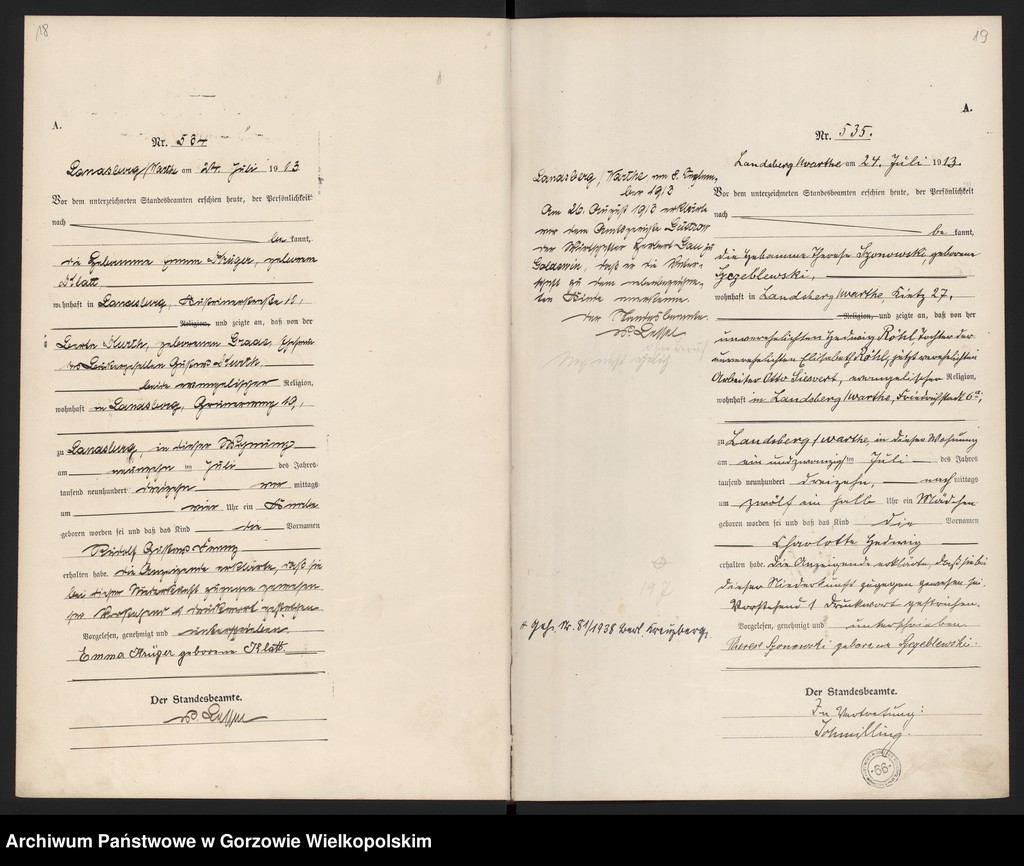 18
A.
Nr. 534
Landsberg/Warthe am 24. Juli 1913
Vor dem unterzeichneten Standesbeamten erschien heute, der Persönlichkeit
nach
be kannt,
die Hebamme Emma Krüger, geborene
Klatt,
wohnhaft in Landsberg, 18,
Religion, und zeigte an, daß von der
Kurth, geborenen
Kurth,
beide evangelischer Religion,
wohnhaft in Landsberg, 19,
zu Landsberg, in dieser Wohnung
am neunzehnten Juli des Jahres
tausend neunhundert dreizehn vor mittags
um vier Uhr ein Knabe
geboren worden sei und daß das Kind die Vornamen
Rudolf Gustav
erhalten habe. Die Anzeigende erklärte, daß sie
bei dieser Niederkunft zugegen gewesen
sei. Vorstehend 1 Druckwort gestrichen.
Vorgelesen, genehmigt und unterschrieben
Emma Krüger geborene Klatt.
Der Standesbeamte.
19
A.
Nr. 535.
Landsberg/Warthe am 24. Juli 1913.
Vor dem unterzeichneten Standesbeamten erschien heute, der Persönlichkeit
nach
be kannt,
die Hebamme Therese Szonowski, geborene
Szczeblewski,
wohnhaft in Landsberg/Warthe, Kietz 27,
Religion, und zeigte an, daß von der
unverehelichten Hedwig Röhl, Tochter der
unverehelichten Elisabeth Röhl, jetzt verehelichten
Arbeiter Otto Sievert, evangelischer Religion,
wohnhaft in Landsberg/Warthe, Friedrichstadt 6a,
zu Landsberg/Warthe, in dieser Wohnung
am ein und zwanzigsten Juli des Jahres
tausend neunhundert dreizehn, nach mittags
um zwölf ein halb Uhr ein Mädchen
geboren worden sei und daß das Kind die Vornamen
Charlotte Hedwig
erhalten habe. Die Anzeigende erklärte, daß sie bei
dieser Niederkunft zugegen gewesen sei.
Vorstehend 1 Druckwort gestrichen.
Vorgelesen, genehmigt und unterschrieben
Therese Szonowski geborene Szczeblewski.
Der Standesbeamte.
In Vertretung:
Schmilling.
66
Landsberg/Warthe am 8. Septem-
ber 1913
Am 26. August 1913 erklärte
vor dem Amtsgericht Güstrow
der Herbert zu
daß er die Vater-
schaft zu dem nebenbezeichne-
ten Kinde anerkenne.
Der Standesbeamte.
Geh. Nr. 81/1938 Berl. Kreuzberg.
Archiwum Państwowe w Gorzowie Wielkopolskim